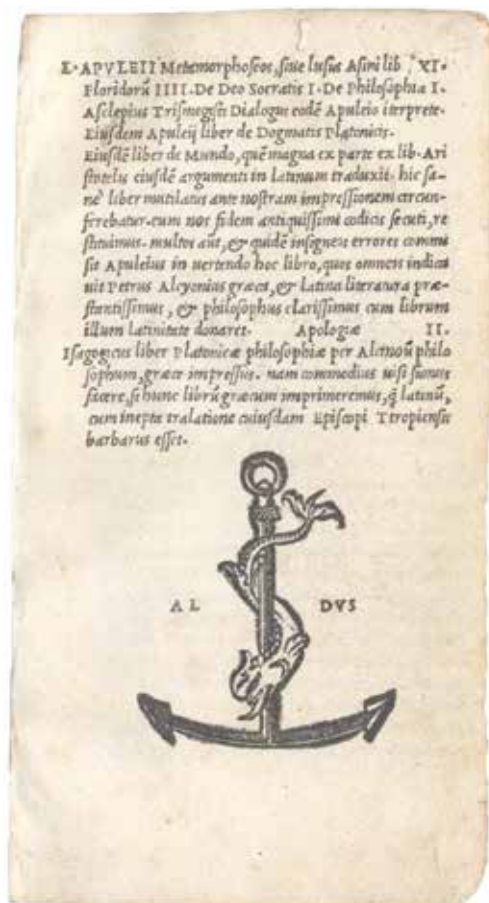 L. APVLEII Metamorphoseos, siue lusus Asini lib. XI.
Floridorū IIII. De Deo Socratis I. De Philosophia I.
Asclepius Trismegisti Dialogus eodē Apuleio iterprete.
Eiusdem Apuleij liber de Dogmatis Platonicis.
Eiusdē liber de Mundo, quē magna ex parte ex lib. Ari
stotelis eiusdē argumenti in latinum traduxit. hic sa-
ne liber mutilatus ante nostram impressionem circun-
ferebatur. cum nos fidem antiquissimi codicis secuti, re
stituimus. multos aūt, & quidē insigneis errores commi
sit Apuleius in uertendo hoc libro, quos omneis indica
uit Petrus Alcyonius græca, & latina literatura præ-
stantissimus, & philosophus clarissimus cum librum
illum latinitate donaret. Apologiæ II.
Isagogicus liber Platonicæ philosophiæ per Alcinoū philo
sophum, græce impressus. nam commodius uisi sumus
facere, si hunc librū græcum imprimeremus, q̄ latinū,
cum inepta tralatione cuiusdam Episcopi Tropiensis
barbarus esset.
AL DVS